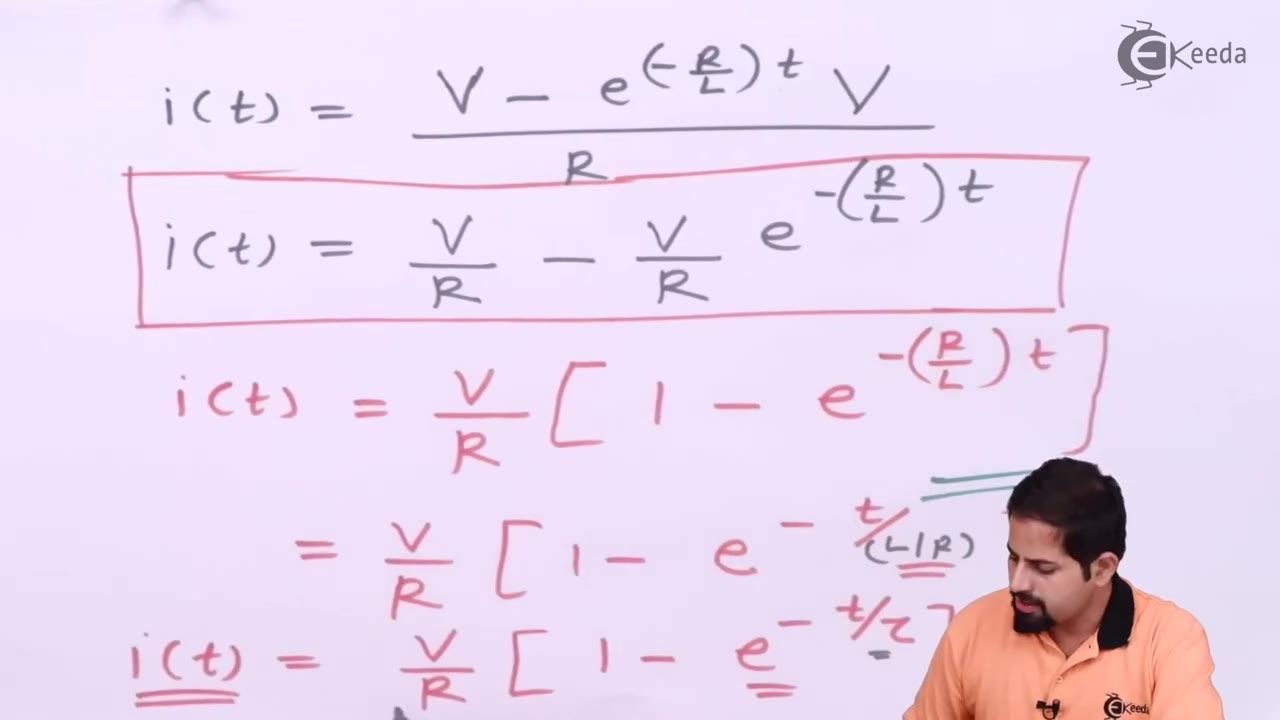 EKeeda
i(t) = V - e^(-R/L)t V / R
i(t) = V/R - V/R e^-(R/L)t
i(t) = V/R [ 1 - e^-(R/L)t ]
= V/R [ 1 - e^- t/(L/R)
i(t) = V/R [ 1 - e^- t/τ ]
EKeeda